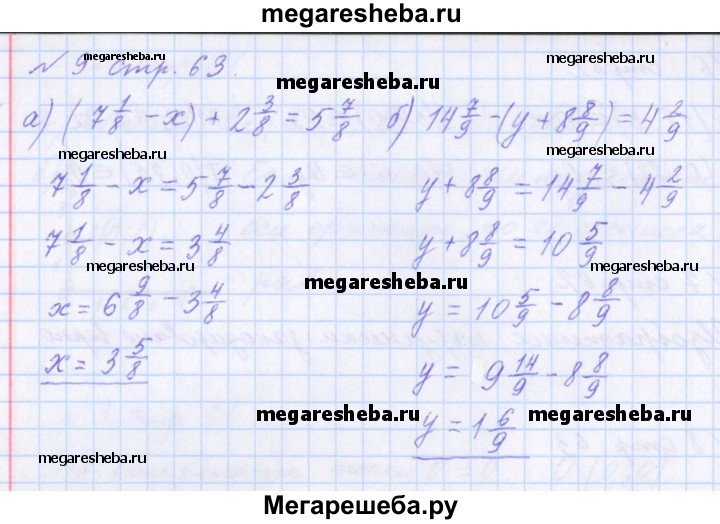 megaresheba.ru
№ 9 стр. 63.
megaresheba.ru megaresheba.ru
а) (7 1/8 - x) + 2 3/8 = 5 7/8 б) 14 7/9 - (y + 8 8/9) = 4 2/9
megaresheba.ru megaresheba.ru
7 1/8 - x = 5 7/8 - 2 3/8 y + 8 8/9 = 14 7/9 - 4 2/9
7 1/8 - x = 3 4/8 y + 8 8/9 = 10 5/9
megaresheba.ru megaresheba.ru
x = 6 9/8 - 3 4/8 y = 10 5/9 - 8 8/9
megaresheba.ru
x = 3 5/8 y = 9 14/9 - 8 8/9
megaresheba.ru megaresheba.ru
y = 1 6/9
megaresheba.ru megaresheba.ru
Мегарешеба.ру